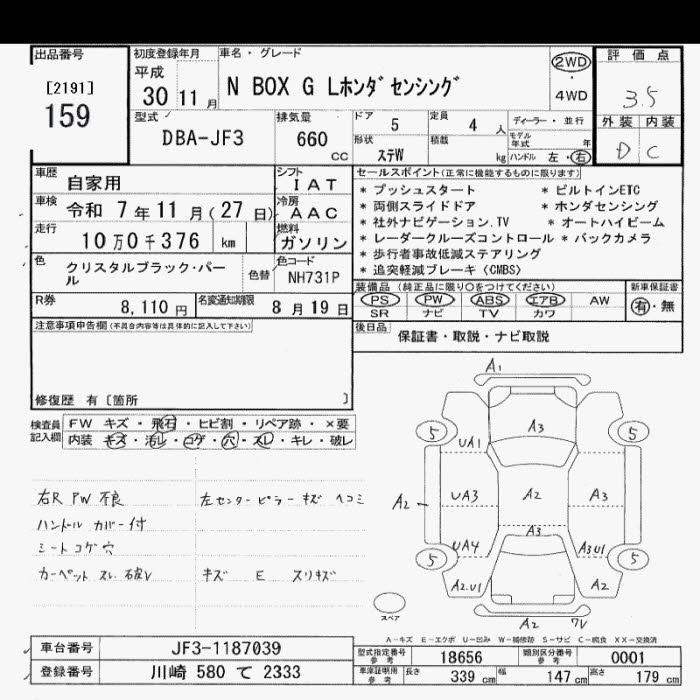 出品番号
[2191]
159
初度登録年月
平成
30 11 月
車名・グレード
N BOX G Lホンダセンシング
2WD
・
4WD
評価点
3.5
外装 内装
D C
型式
DBA-JF3
排気量
660
CC
ドア
5
定員
4 人
ディーラー・並行
形状
ステW
積載
kg
モデル年式 年
ハンドル 左・右
車歴
自家用
シフト
IAT
車検
令和 7 年 11 月 (27 日)
冷房
AAC
走行
10 万 0 千 376 km
燃料
ガソリン
色
クリスタルブラック・パール
色替
色コード
NH731P
R券
8,110 円
名変通知期限
8 月 19 日
セールスポイント(正常に機能するものに限ります)
* プッシュスタート * ビルトインETC
* 両側スライドドア * ホンダセンシング
* 社外ナビゲーション.TV * オートハイビーム
* レーダークルーズコントロール * バックカメラ
* 歩行者事故低減ステアリング
* 追突軽減ブレーキ (CMBS)
装備品 (純正品に限り○をつけてください)
PS PW ABS エアB AW
SR ナビ TV カワ
新車保証書
有・無
後日品
保証書・取説・ナビ取説
注意事項申告欄(不具合内容等は具体的に記入して下さい)
修復歴 有 [箇所 ]
検査員記入欄
FW キズ・飛石・ヒビ割・リペア跡・×要
内装 キズ・汚レ・コゲ・穴・スレ・キレ・破レ
右R PW 不良
左センターピラー キズ ヘコミ
ハンドル カバー付
シート コゲ 穴
カーペット スレ 破レ
キズ E スリキズ
A1
5
5
A3
UA1
A2
UA3
A2
A3
A3
UA4
A3U1
5
5
A2.U1
A2
A2
スペア
A-キズ E-エクボ U-凹み W-補修跡 S-サビ C-腐食 XX-交換済
車台番号
JF3-1187039
登録番号
川崎 580 て 2333
型式指定番号
参考
18656
類別区分番号
参考
0001
車庫証明用
参考
長さ
339 cm
幅
147 cm
高さ
179 cm